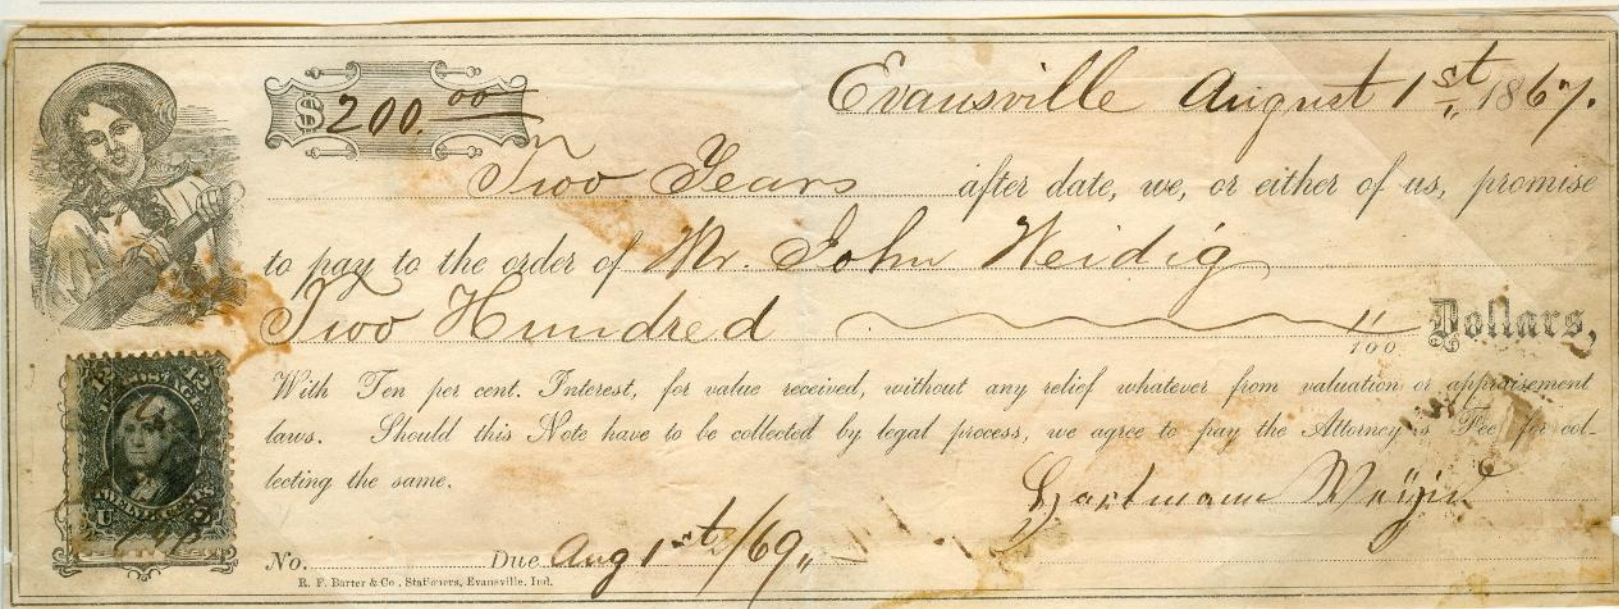 $200.00
Evansville August 1st, 1867.
Two Years after date, we, or either of us, promise
to pay to the order of Mr. John Weidig
Two Hundred 11/100 Dollars,
With Ten per cent. Interest, for value received, without any relief whatever from valuation or appraisement
laws. Should this Note have to be collected by legal process, we agree to pay the Attorney's Fee for col-
lecting the same.
Hartmann
No. Due Aug 1st/69
R. F. Barter & Co., Stationers, Evansville, Ind.
12 12
U.S. POSTAGE
TWELVE CENTS
U S